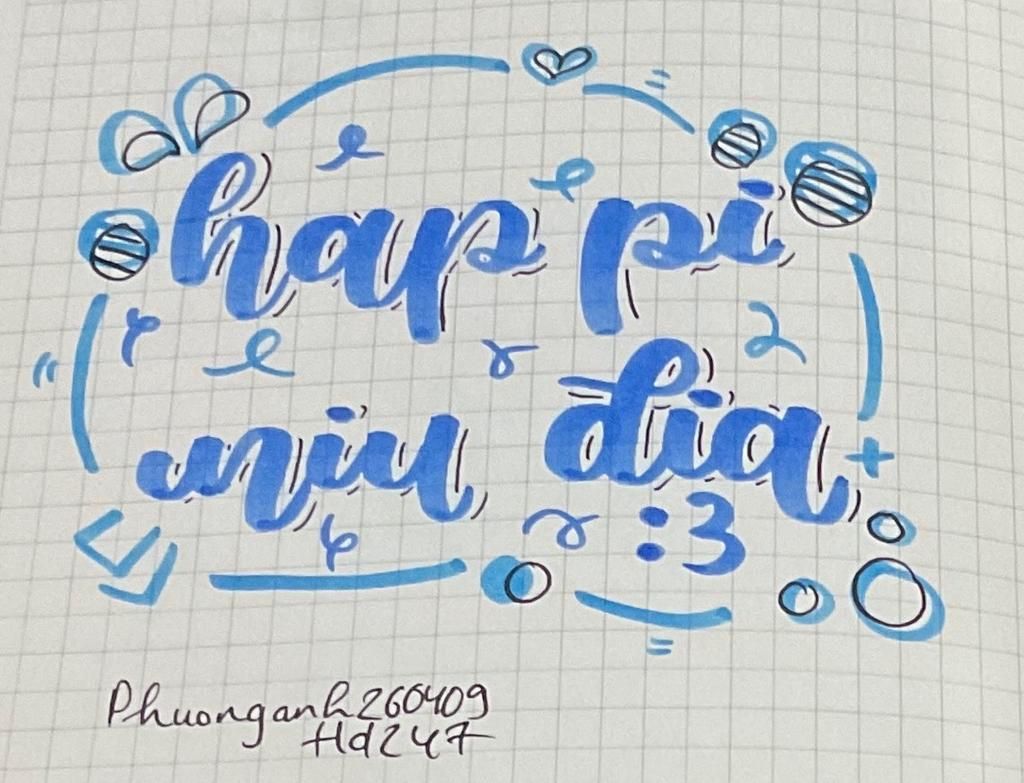 hap pi
niu đia
:3
Phuonganh260409
Hd247